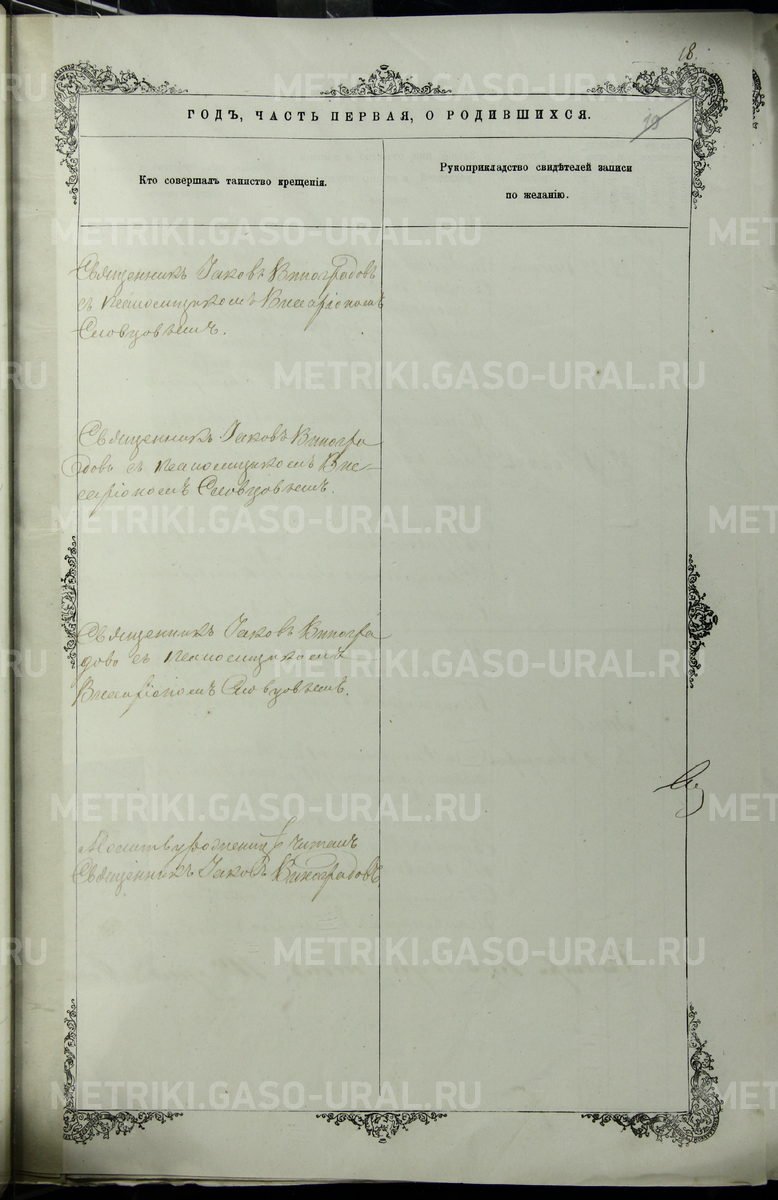 18.
19
ГОДЪ, ЧАСТЬ ПЕРВАЯ, О РОДИВШИХСЯ.
Кто совершалъ таинство крещенія.
Рукоприкладство свидѣтелей записи
по желанію.
Священникъ Іаковъ Виноградовъ
съ псаломщикомъ Виссаріономъ
Словцовымъ.
Священникъ Іаковъ Виногра
довъ съ псаломщикомъ Вис-
саріономъ Словцовымъ.
Священникъ Іаковъ Виногра
довъ съ псаломщикомъ
Виссаріономъ Словцовымъ.
Молитву рожениц читалъ
Священникъ Іаковъ Виноградовъ.
METRIKI.GASO-URAL.RU